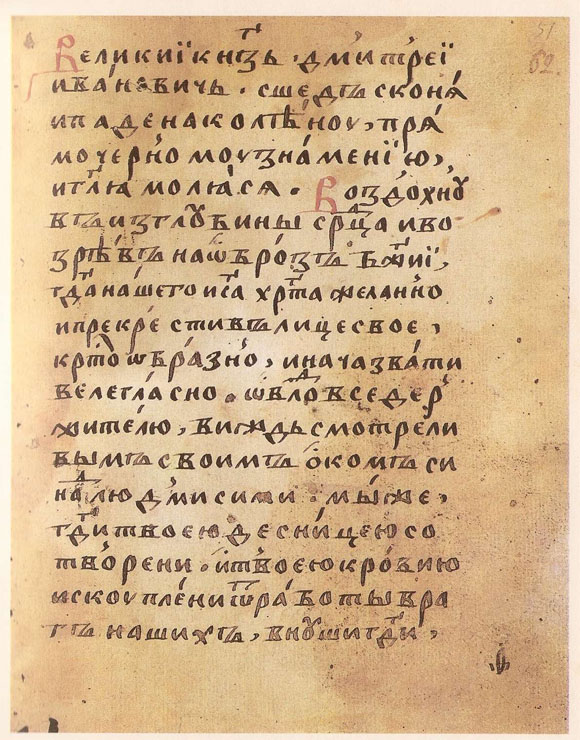 51
62.
Великиї кн҃зь · дмитреї
ива́новичь · сшедъ с коня́
и паде на колѣ́ноу, пря́
мо че́рномоу зна́менїю,
и гл҃ю моляся · Воздохноу́
въ из глꙋбины ср҃дца и во
зрѣ́въ на ѡ́бро́зъ бж҃иї,
гд҃а на́шего ис҃а хр҃та жела́нно
и прекре́стивъ лице свое,
кр҃тоѡбра́зно, и нача зва́ти
велегла́сно · ѡ вл҃ко вседер
жи́телю, виждь смотре́ли
вымъ своимъ о́комъ си
на люд҃ми сими · мы́ же,
гд҃и твоею десни́цею со
тво́рени · и твоею кро́вию
искоупле́ни ѿ рабо́ты вра
гъ нашихъ, внꙋши гд҃и,